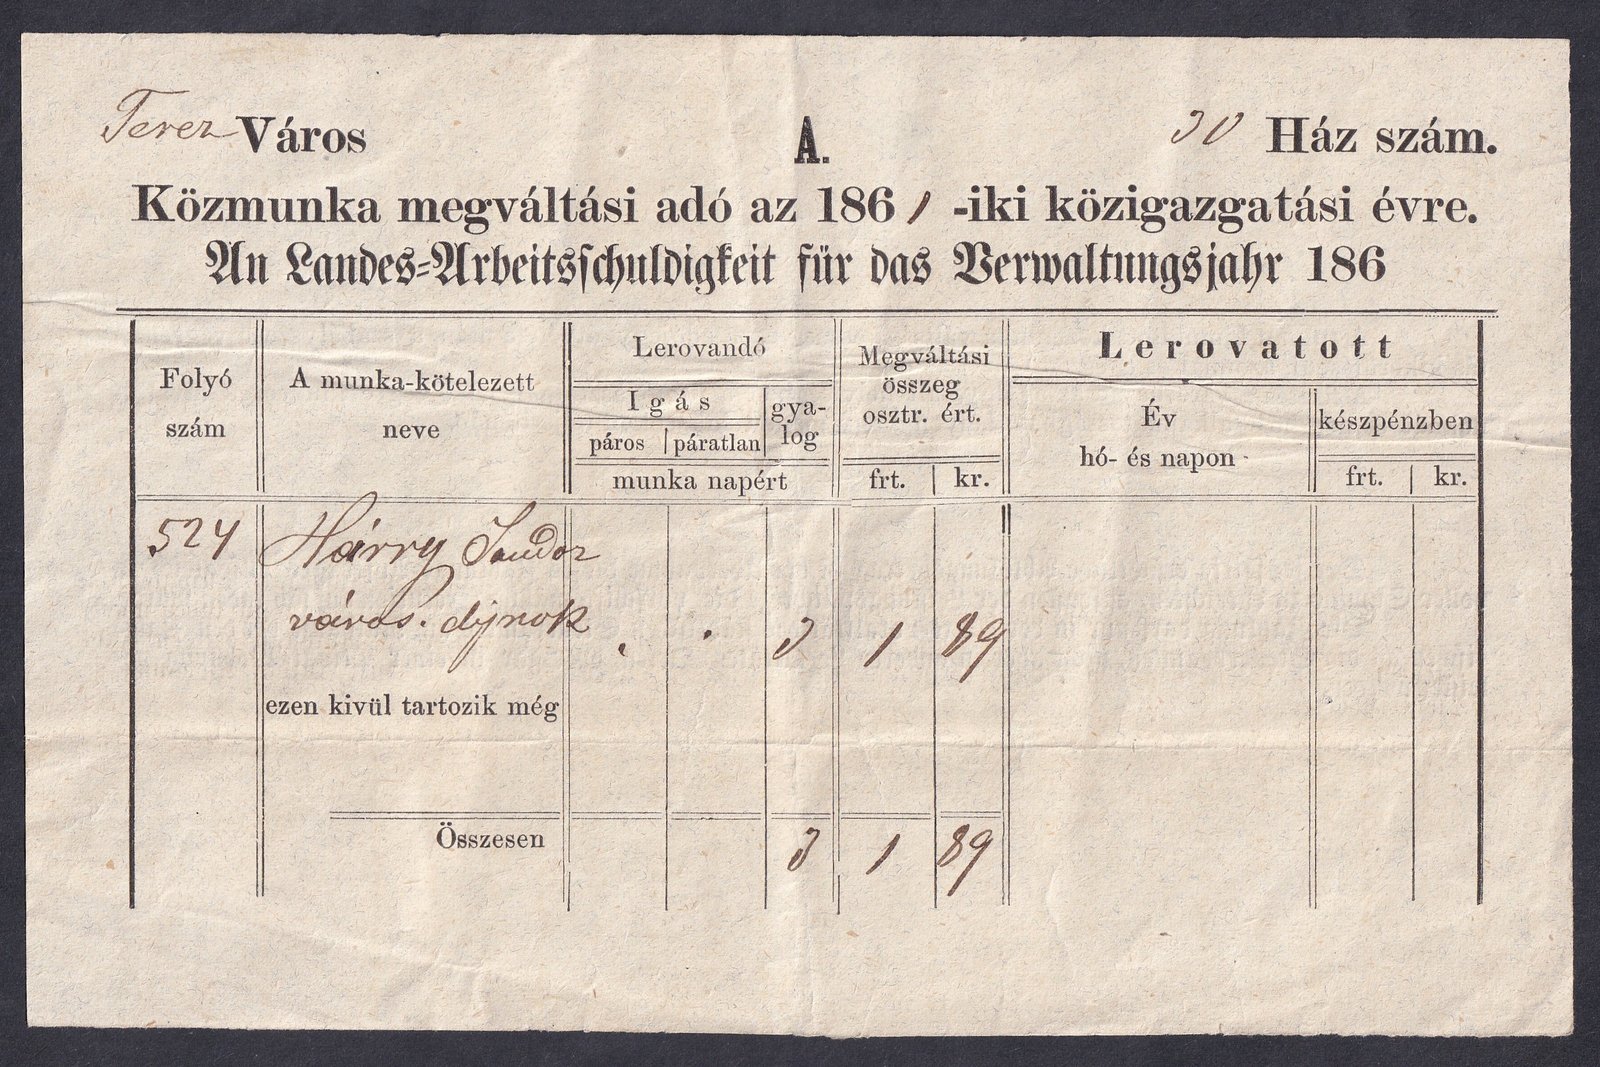 Terez Város A. 30 Ház szám.
Közmunka megváltási adó az 1861-iki közigazgatási évre.
An Landes-Arbeitsschuldigkeit für das Verwaltungsjahr 186
Folyó szám
A munka-kötelezett neve
Lerovandó
Igás
páros | páratlan
gya-
log
munka napért
Megváltási
összeg
osztr. ért.
frt. | kr.
Lerovatott
Év
hó- és napon
készpénzben
frt. | kr.
524 Hárry Sandor
város. dijnok 3 1 89
ezen kivül tartozik még
Összesen 3 1 89